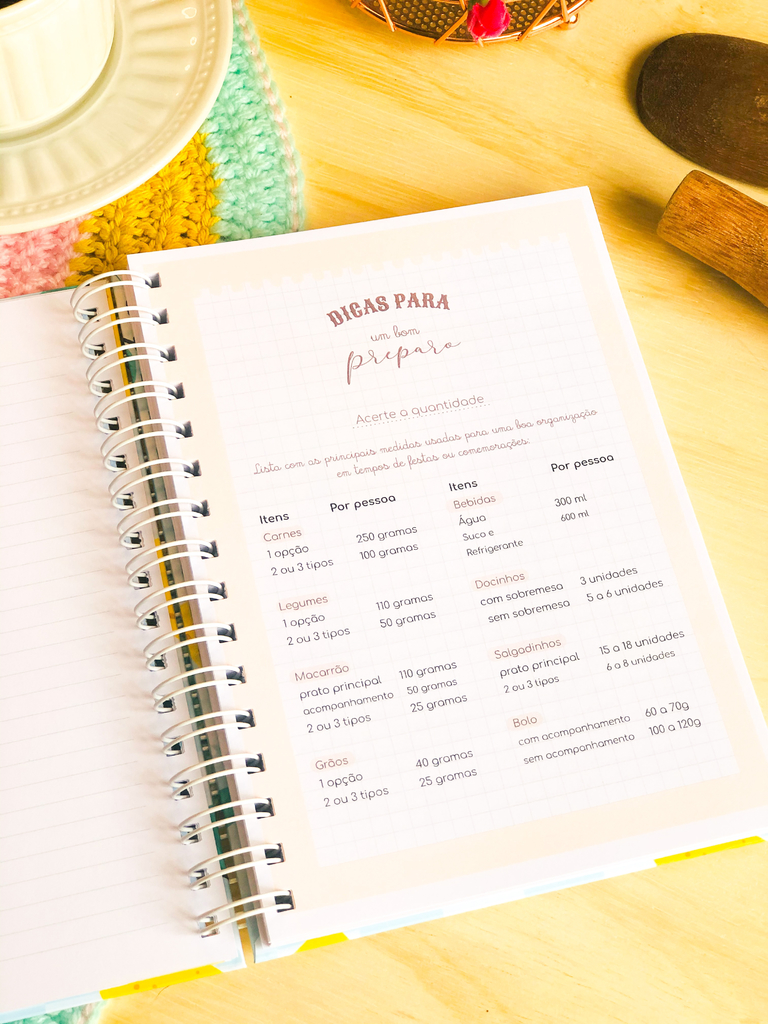 DICAS PARA
um bom
preparo
Acerte a quantidade
Lista com as principais medidas usadas para uma boa organização
em tempos de festas ou comemorações:
Itens Por pessoa
Carnes
1 opção 250 gramas
2 ou 3 tipos 100 gramas
Legumes
1 opção 110 gramas
2 ou 3 tipos 50 gramas
Macarrão
prato principal 110 gramas
acompanhamento 50 gramas
2 ou 3 tipos 25 gramas
Grãos
1 opção 40 gramas
2 ou 3 tipos 25 gramas
Itens Por pessoa
Bebidas
Água 300 ml
Suco e 600 ml
Refrigerante
Docinhos
com sobremesa 3 unidades
sem sobremesa 5 a 6 unidades
Salgadinhos
prato principal 15 a 18 unidades
2 ou 3 tipos 6 a 8 unidades
Bolo
com acompanhamento 60 a 70g
sem acompanhamento 100 a 120g